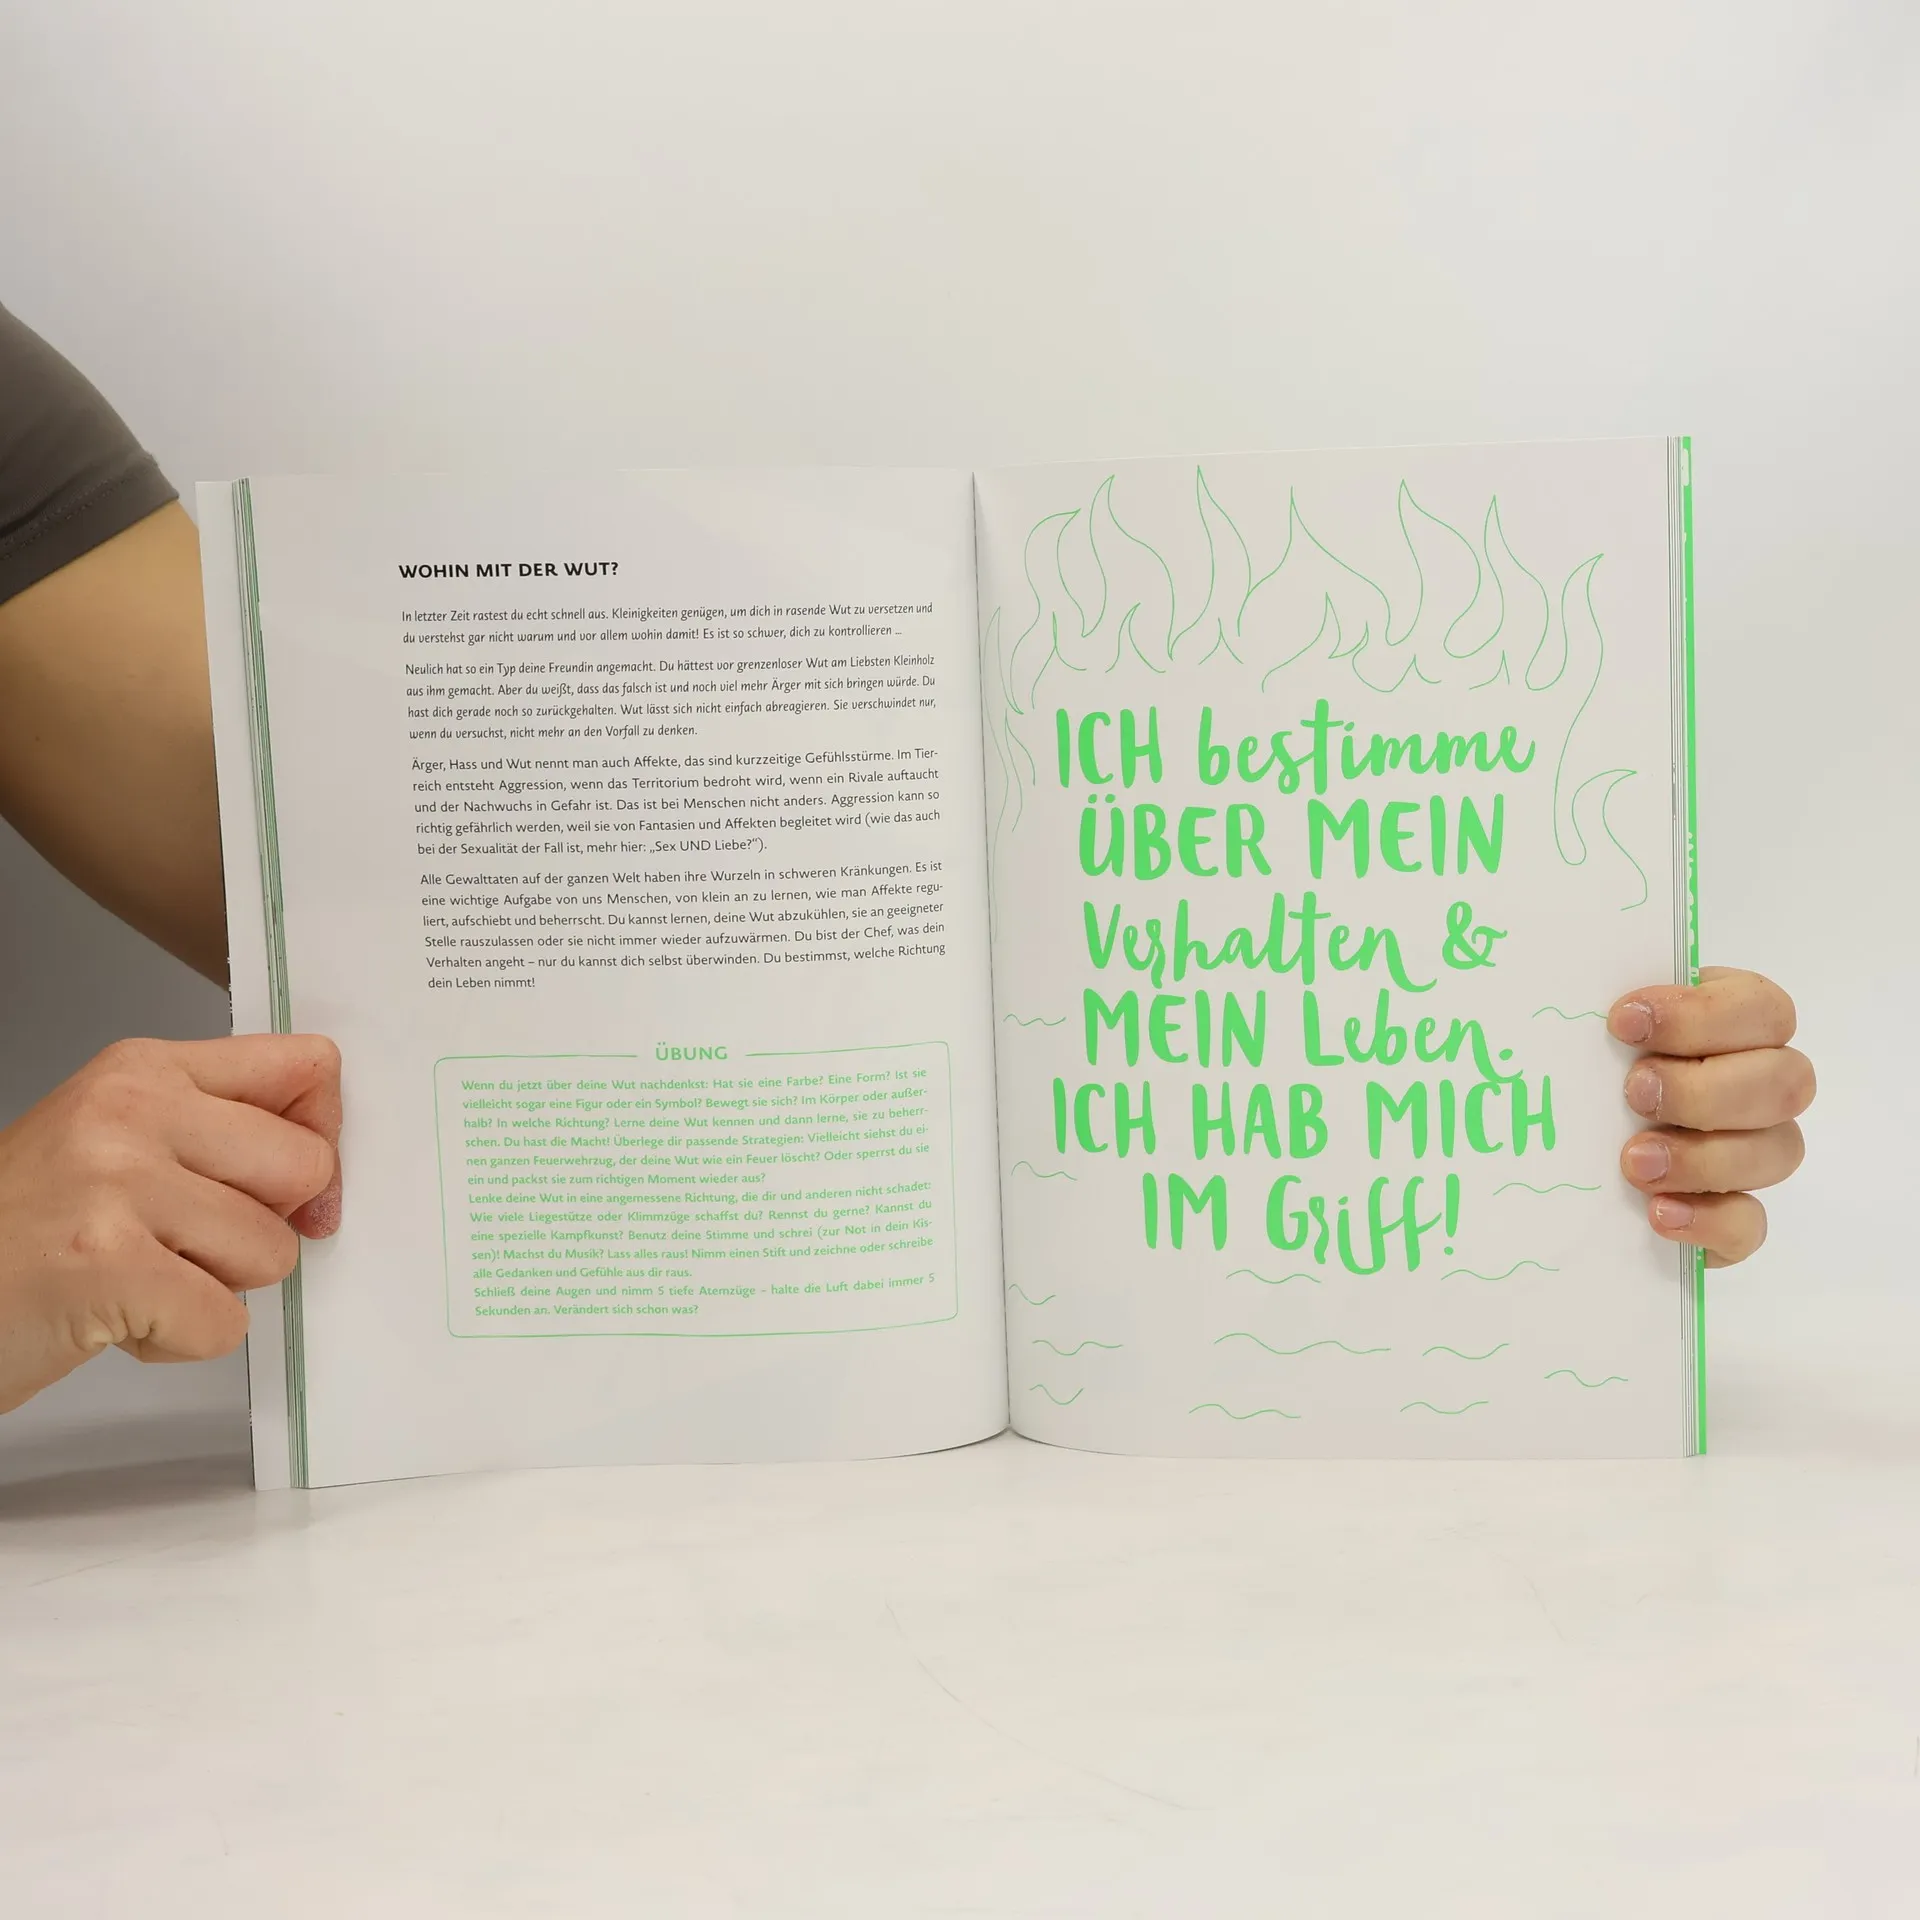 WOHIN MIT DER WUT?
In letzter Zeit rastest du echt schnell aus. Kleinigkeiten genügen, um dich in rasende Wut zu versetzen und
du verstehst gar nicht warum und vor allem wohin damit! Es ist so schwer, dich zu kontrollieren ...
Neulich hat so ein Typ deine Freundin angemacht. Du hättest vor grenzenloser Wut am Liebsten Kleinholz
aus ihm gemacht. Aber du weißt, dass das falsch ist und noch viel mehr Ärger mit sich bringen würde. Du
hast dich gerade noch so zurückgehalten. Wut lässt sich nicht einfach abreagieren. Sie verschwindet nur,
wenn du versuchst, nicht mehr an den Vorfall zu denken.
Ärger, Hass und Wut nennt man auch Affekte, das sind kurzzeitige Gefühlsstürme. Im Tier-
reich entsteht Aggression, wenn das Territorium bedroht wird, wenn ein Rivale auftaucht
und der Nachwuchs in Gefahr ist. Das ist bei Menschen nicht anders. Aggression kann so
richtig gefährlich werden, weil sie von Fantasien und Affekten begleitet wird (wie das auch
bei der Sexualität der Fall ist, mehr hier: „Sex UND Liebe?“).
Alle Gewalttaten auf der ganzen Welt haben ihre Wurzeln in schweren Kränkungen. Es ist
eine wichtige Aufgabe von uns Menschen, von klein an zu lernen, wie man Affekte regu-
liert, aufschiebt und beherrscht. Du kannst lernen, deine Wut abzukühlen, sie an geeigneter
Stelle rauszulassen oder sie nicht immer wieder aufzuwärmen. Du bist der Chef, was dein
Verhalten angeht – nur du kannst dich selbst überwinden. Du bestimmst, welche Richtung
dein Leben nimmt!
ÜBUNG
Wenn du jetzt über deine Wut nachdenkst: Hat sie eine Farbe? Eine Form? Ist sie
vielleicht sogar eine Figur oder ein Symbol? Bewegt sie sich? Im Körper oder außer-
halb? In welche Richtung? Lerne deine Wut kennen und dann lerne, sie zu beherr-
schen. Du hast die Macht! Überlege dir passende Strategien: Vielleicht siehst du ei-
nen ganzen Feuerwehrzug, der deine Wut wie ein Feuer löscht? Oder sperrst du sie
ein und packst sie zum richtigen Moment wieder aus?
Lenke deine Wut in eine angemessene Richtung, die dir und anderen nicht schadet:
Wie viele Liegestütze oder Klimmzüge schaffst du? Rennst du gerne? Kannst du
eine spezielle Kampfkunst? Benutz deine Stimme und schrei (zur Not in dein Kis-
sen)! Machst du Musik? Lass alles raus! Nimm einen Stift und zeichne oder schreibe
alle Gedanken und Gefühle aus dir raus.
Schließ deine Augen und nimm 5 tiefe Atemzüge – halte die Luft dabei immer 5
Sekunden an. Verändert sich schon was?
ICH bestimme
ÜBER MEIN
Verhalten &
MEIN Leben.
ICH HAB MICH
IM Griff!